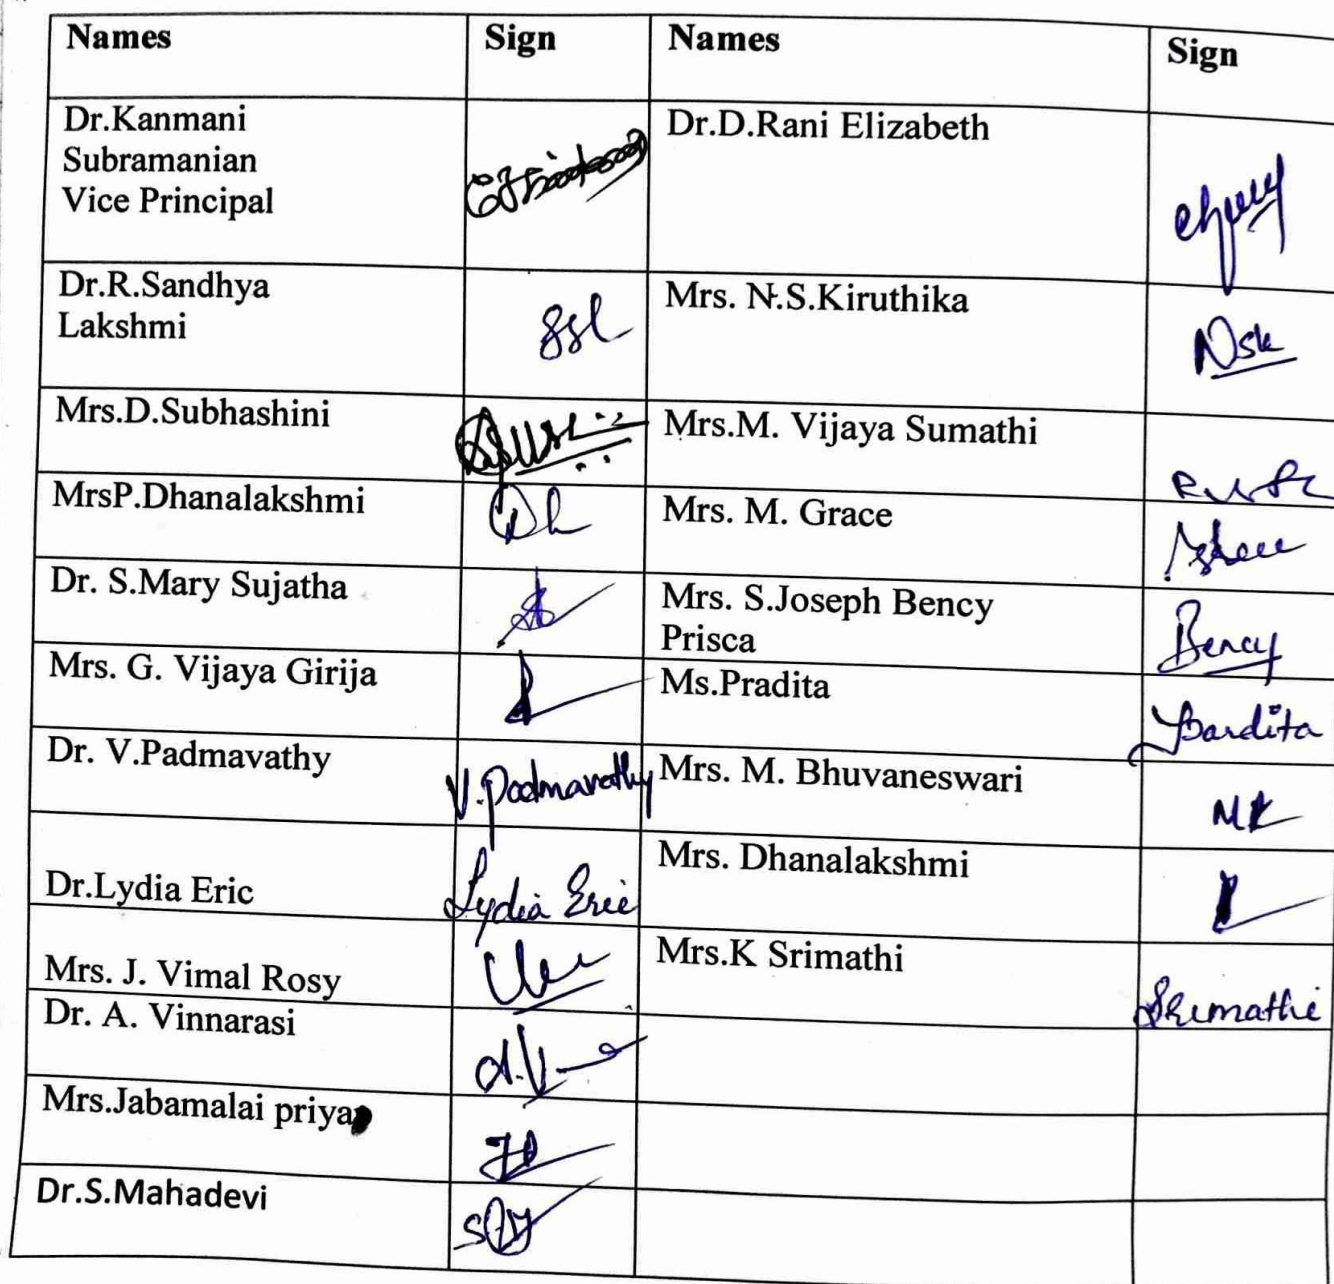 Names Sign Names Sign
Dr.Kanmani
Subramanian
Vice Principal
Dr.D.Rani Elizabeth
Dr.R.Sandhya
Lakshmi
Mrs. N.S.Kiruthika
Nsk
Mrs.D.Subhashini
Mrs.M. Vijaya Sumathi
MrsP.Dhanalakshmi
Mrs. M. Grace
Dr. S.Mary Sujatha
Mrs. S.Joseph Bency
Prisca
Bency
Mrs. G. Vijaya Girija
Ms.Pradita
Dr. V.Padmavathy V.Padmavathy Mrs. M. Bhuvaneswari
Dr.Lydia Eric Lydia Eric Mrs. Dhanalakshmi
Mrs. J. Vimal Rosy
Mrs.K Srimathi Srimathi
Dr. A. Vinnarasi
Mrs.Jabamalai priya
Dr.S.Mahadevi